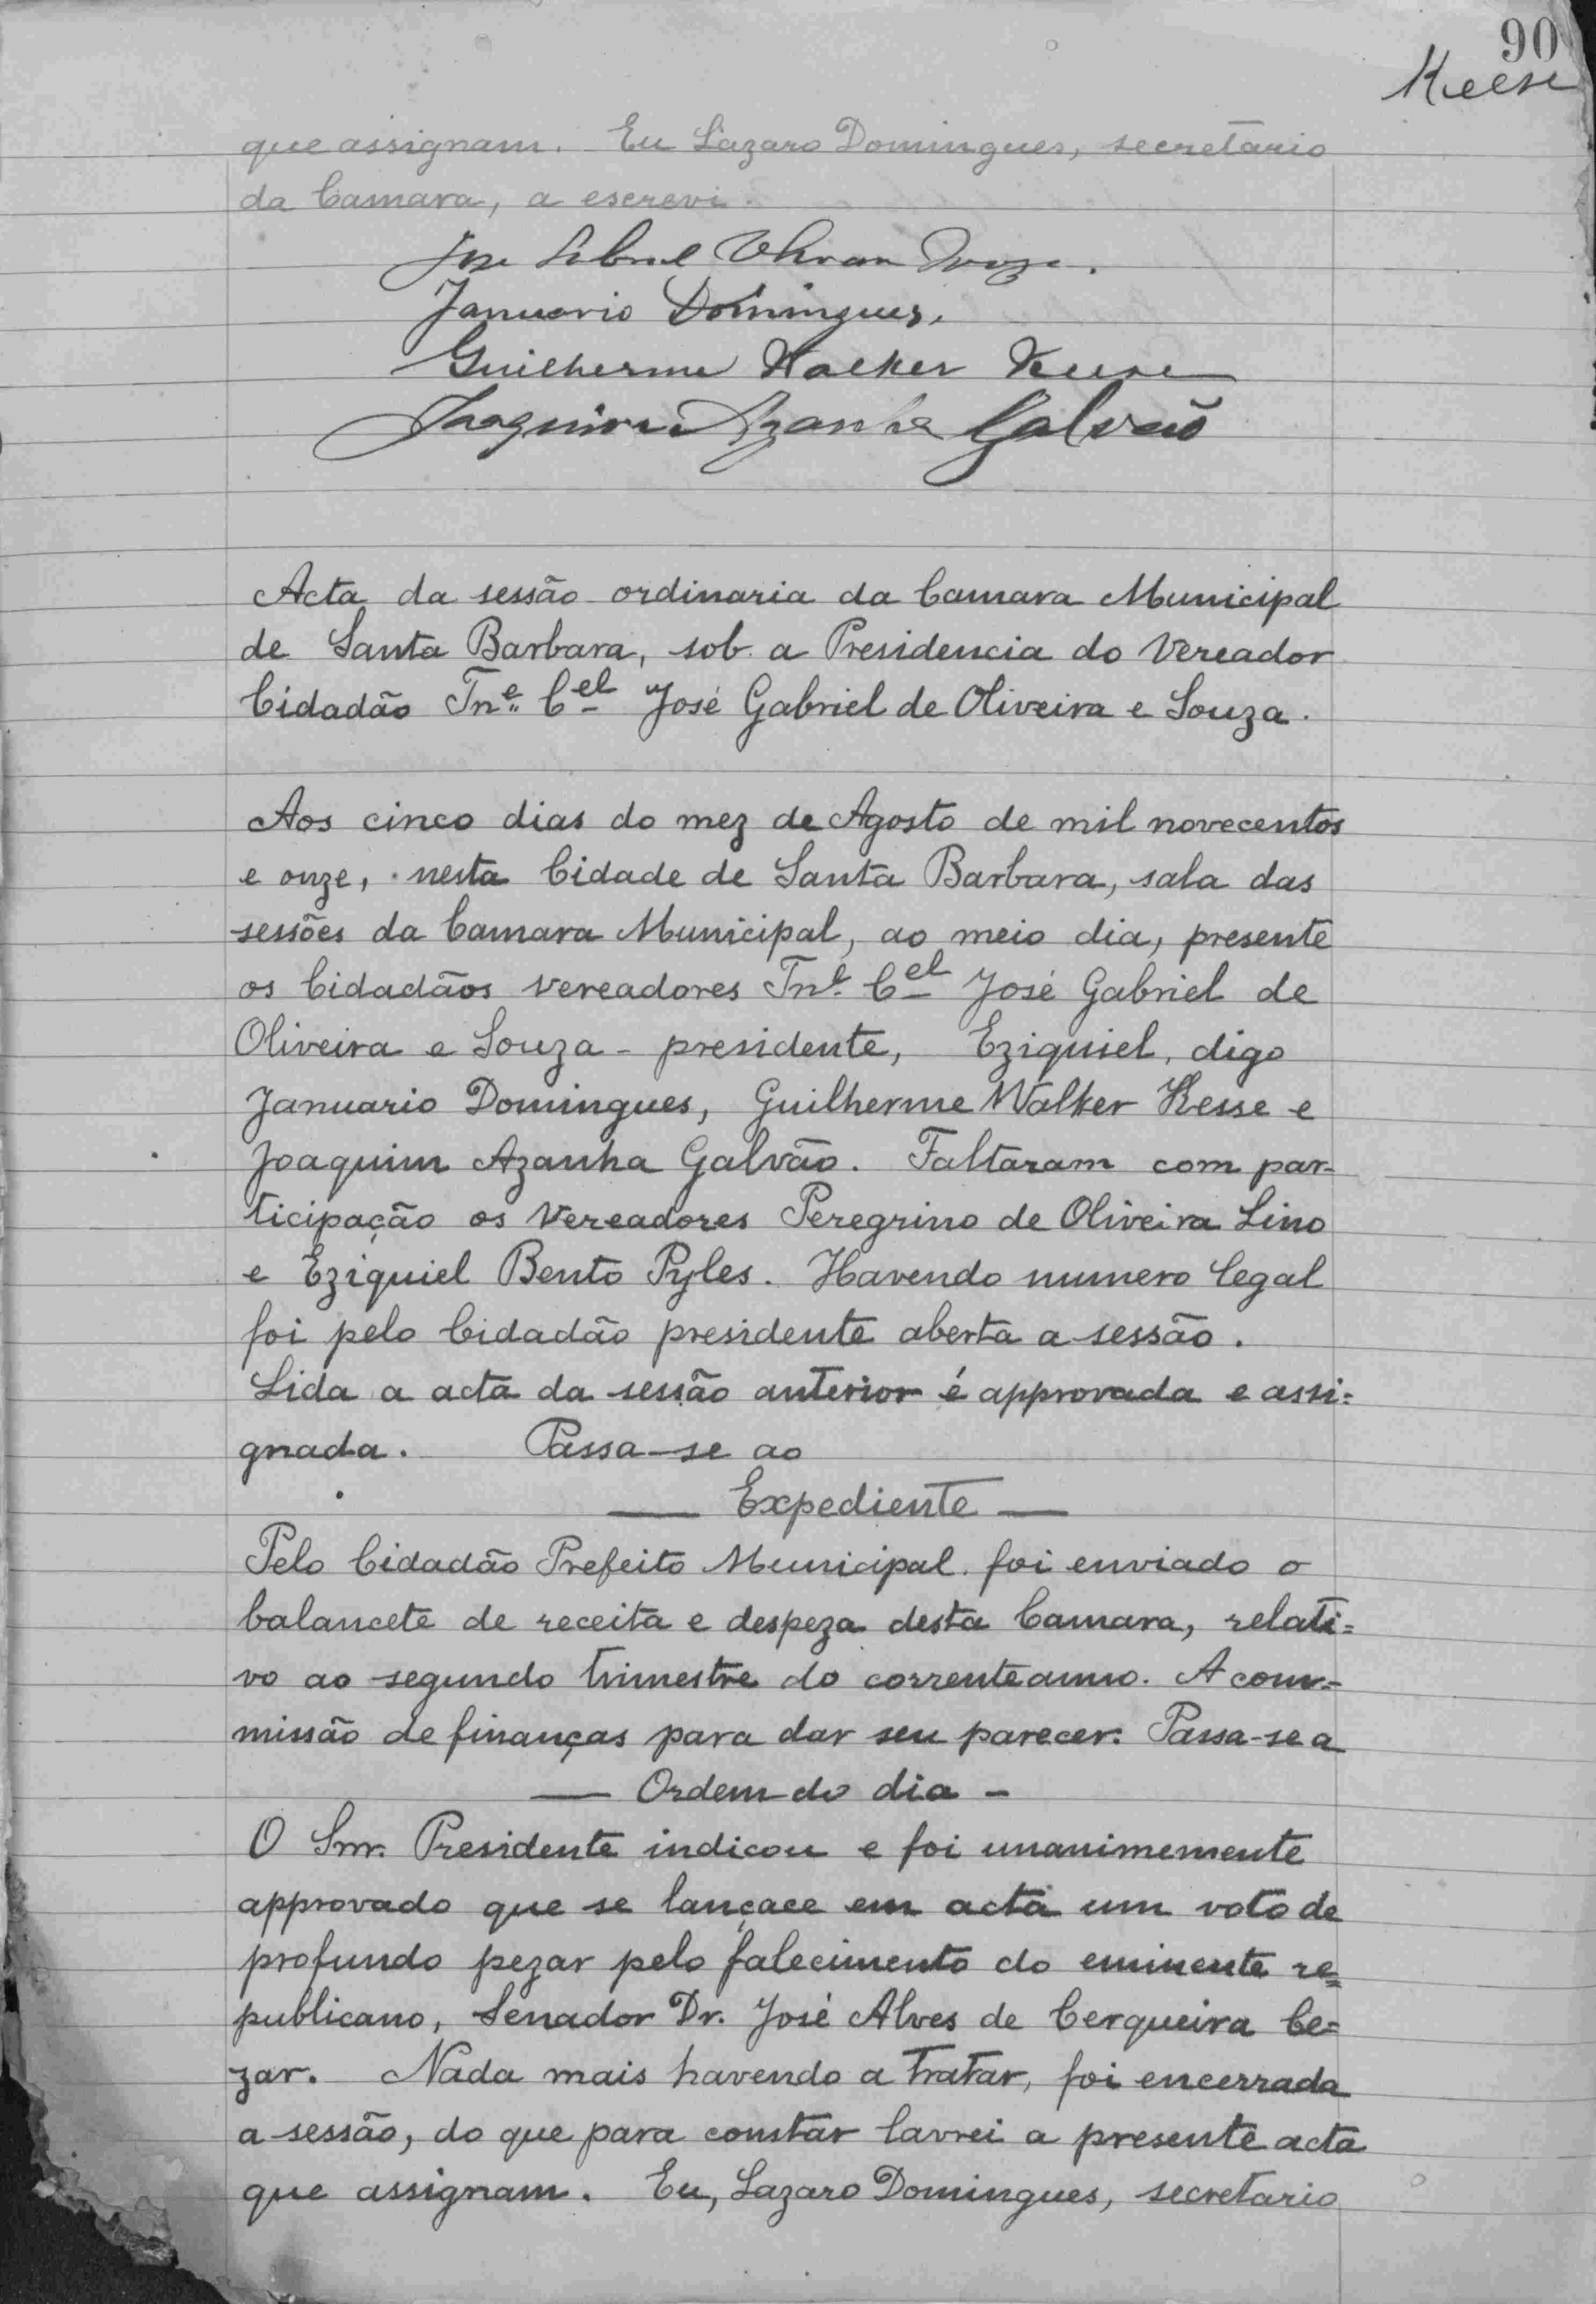 90
Keese
que assignam. Eu Lazaro Domingues, secretario
da Camara, a escrevi.
Jose Gabriel
Januario Domingues,
Guilherme Walker Keese
Joaquim Azanha Galvão
Acta da sessão ordinaria da Camara Municipal
de Santa Barbara, sob a Presidencia do Vereador
Cidadão Tne. Cel José Gabriel de Oliveira e Souza.
Aos cinco dias do mez de Agosto de mil novecentos
e onze, nesta Cidade de Santa Barbara, sala das
sessões da Camara Municipal, ao meio dia, presente
os Cidadãos Vereadores Tne. Cel José Gabriel de
Oliveira e Souza - presidente, Eziquiel, digo
Januario Domingues, Guilherme Walker Kesse e
Joaquim Azanha Galvão. Faltaram com par-
ticipação os Vereadores Peregrino de Oliveira Lino
e Eziquiel Bento Pyles. Havendo numero legal
foi pelo Cidadão presidente aberta a sessão.
Lida a acta da sessão anterior é approvada e assi=
gnada. Passa-se ao
— Expediente —
Pelo Cidadão Prefeito Municipal foi enviado o
balancete de receita e despeza desta Camara, relati=
vo ao segundo trimestre do corrente anno. A com=
missão de finanças para dar seu parecer. Passa-se a
— Ordem do dia -
O Snr. Presidente indicou e foi unanimemente
approvado que se lançace em acta um voto de
profundo pezar pelo falecimento do eminente re=
publicano, Senador Dr. José Alves de Cerqueira Ce=
zar. Nada mais havendo a tratar, foi encerrada
a sessão, do que para constar lavrei a presente acta
que assignam. Eu, Lazaro Domingues, secretario